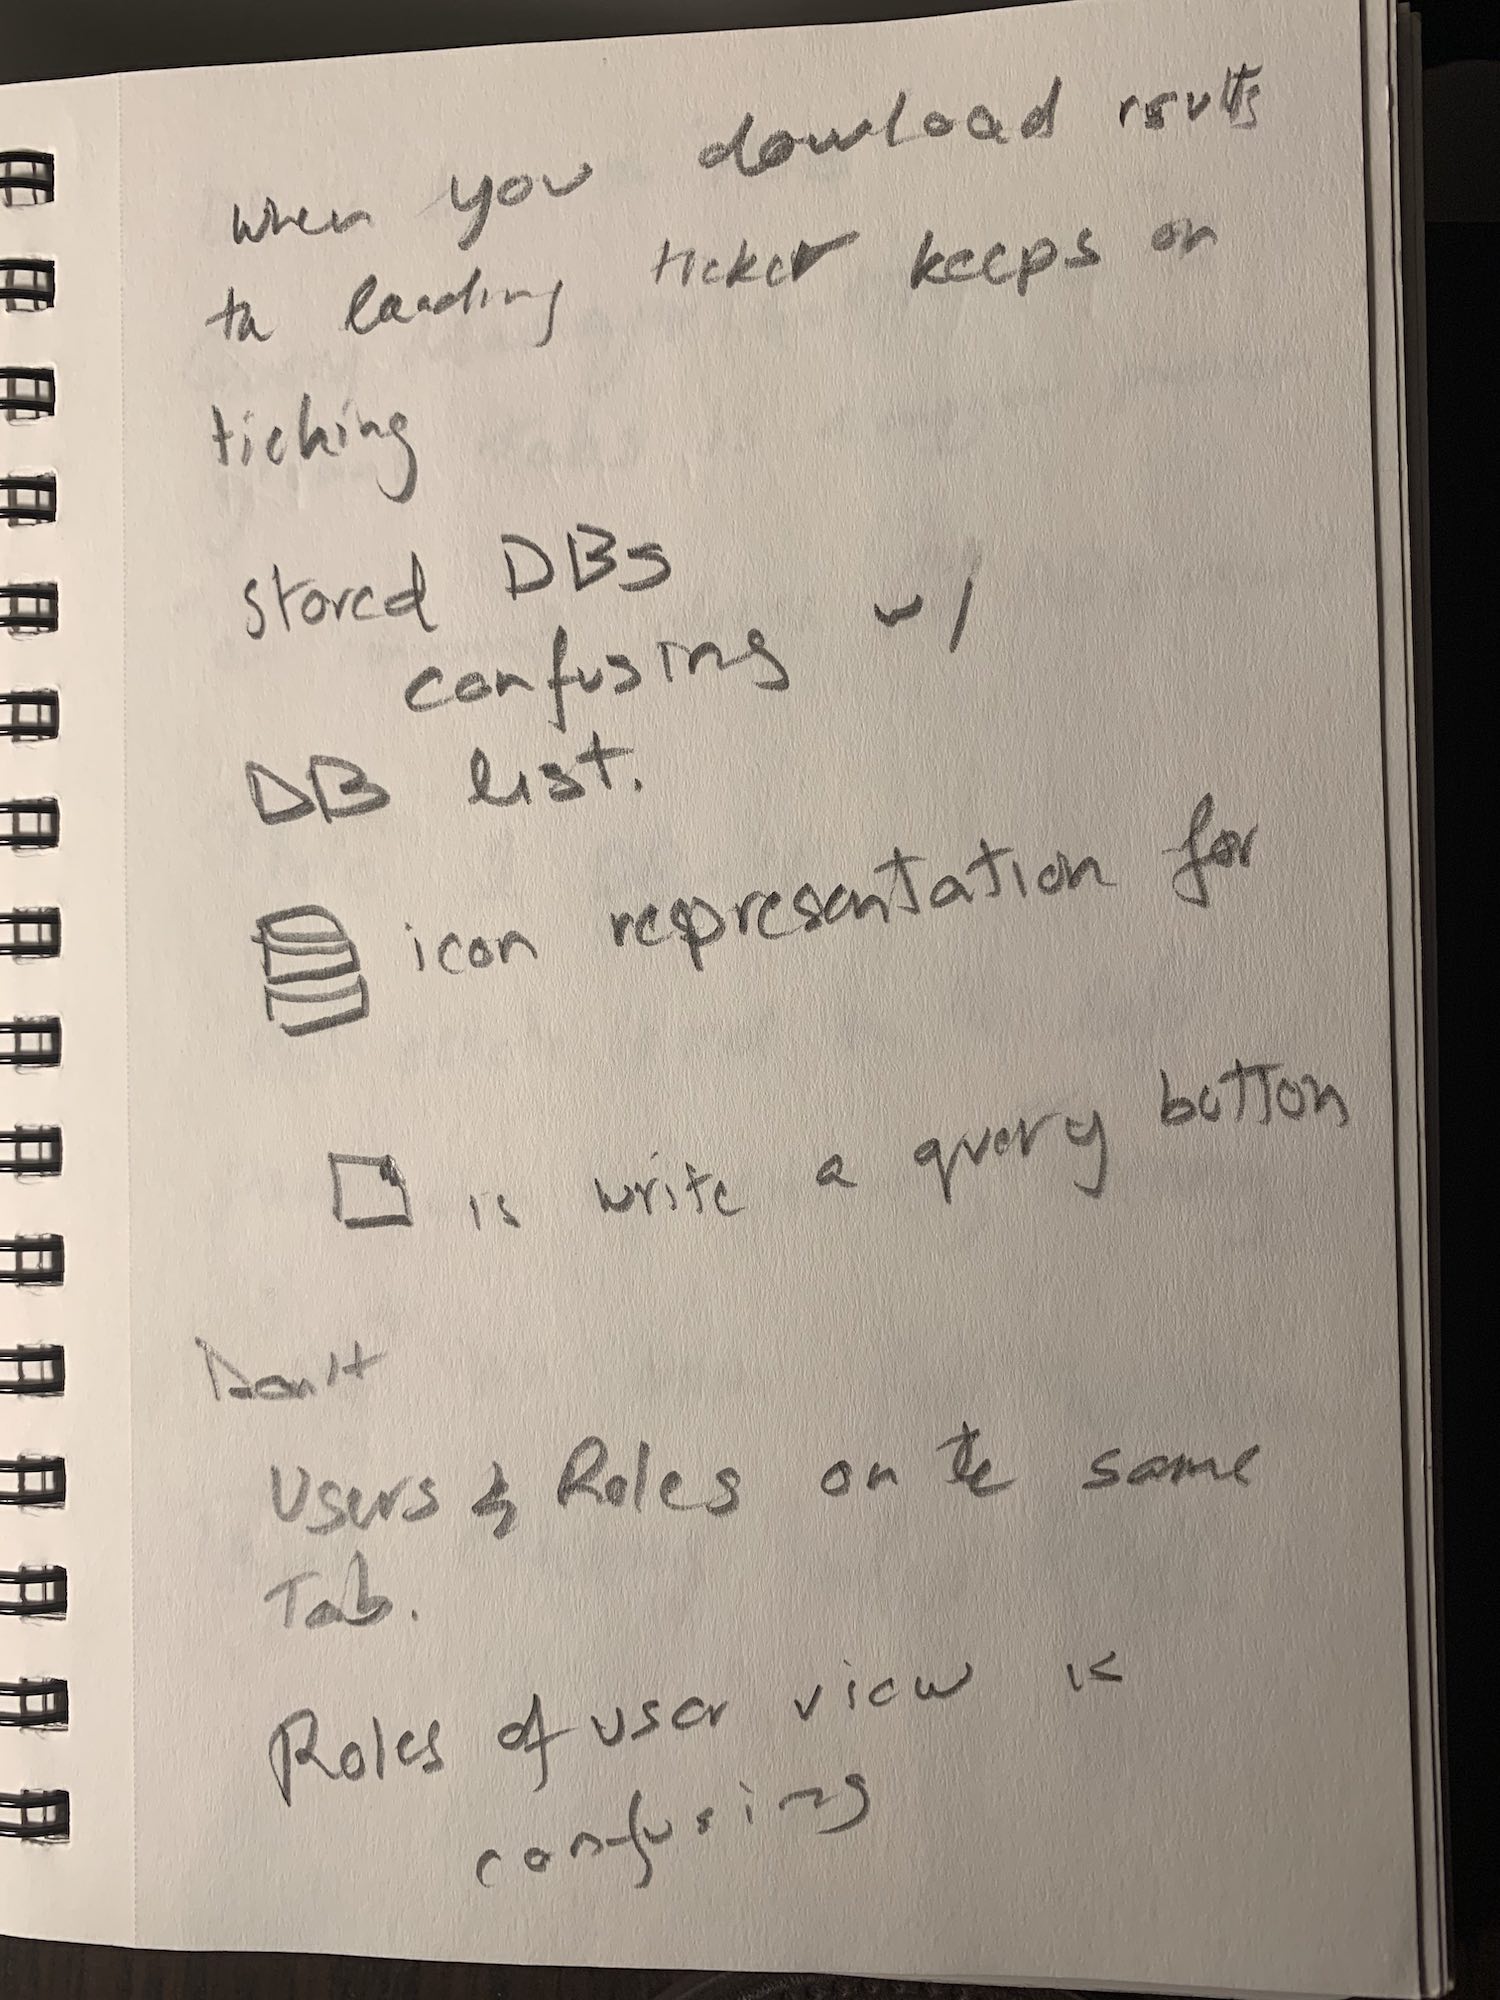 when you dowload rsults
th loading ticker keeps on
ticking
stored DBs
confusing w/
DB list.
icon representation for
is write a query button
Don't
Users & Roles on the same
Tab.
Roles of user view is
confusing